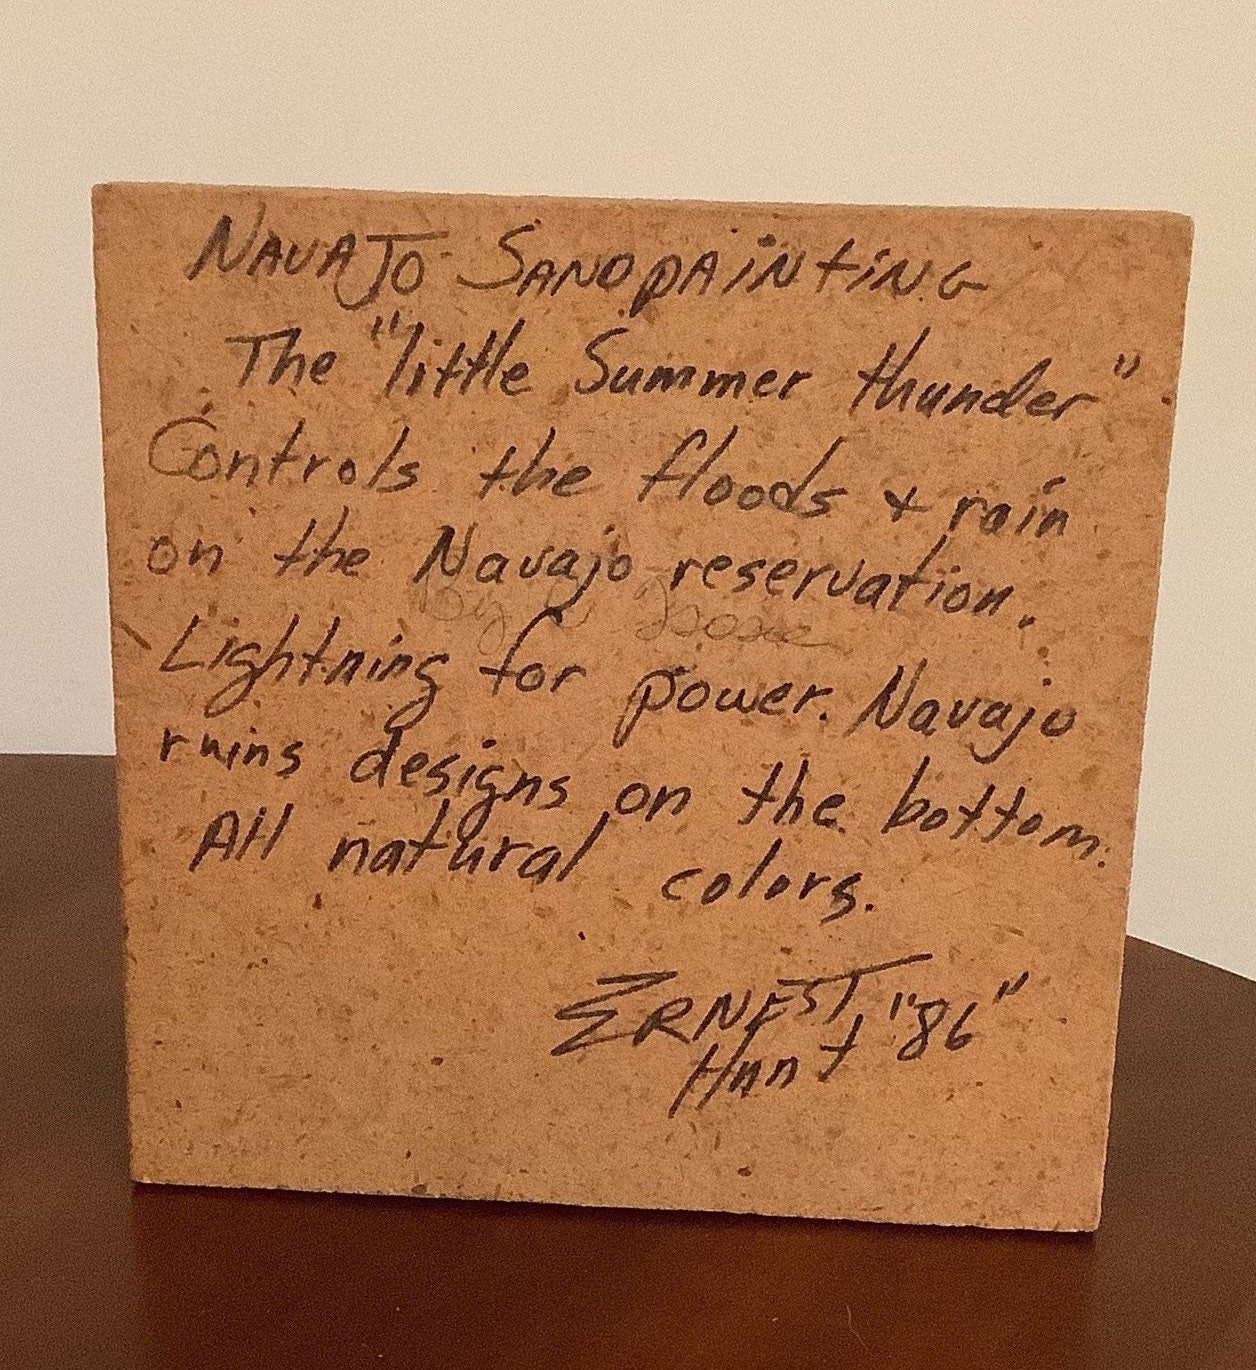 NAVAJO SANDPAINTING
The "little Summer thunder"
Controls the floods & rain
on the Navajo reservation.
by
Lightning for power. Navajo
ruins designs on the bottom.
All natural colors.
ERNEST "86"
Hunt